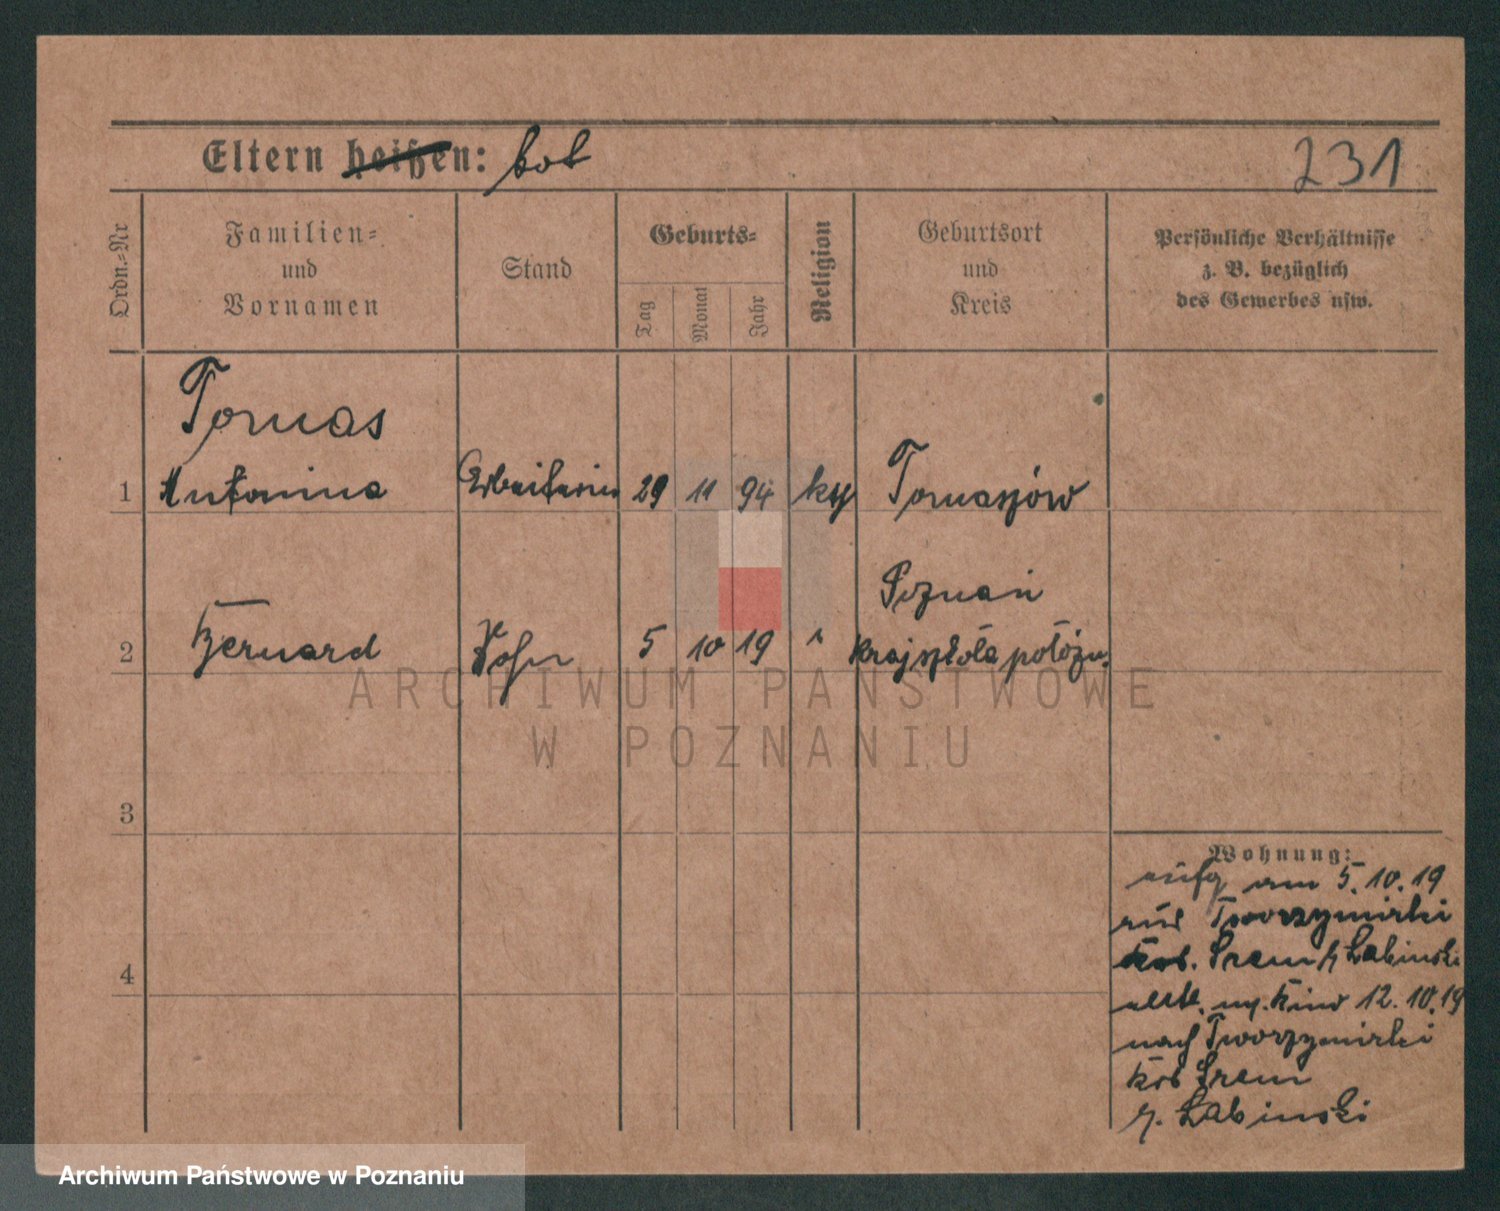 Eltern heißen: tot
231
Ordn.-Nr
Familien-
und
Vornamen
Stand
Geburts-
Tag
Monat
Jahr
Religion
Geburtsort
und
Kreis
Persönliche Verhältnisse
z. B. bezüglich
des Gewerbes usw.
Tomas
1 Antonina Arbeiterin 29 11 94 kth Tomaszów
Poznań
2 Bernard Sohn 5 10 19 " Kraj szkoła położn.
3
4
Wohnung:
am 5.10.19
aus Tworzymirki
Śrem Łabinski
m. Kind 12.10.19
nach Tworzymirki
Śrem
Łabinski
ARCHIWUM PAŃSTWOWE
W POZNANIU
Archiwum Państwowe w Poznaniu